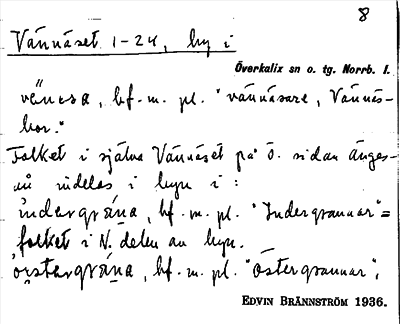 8
Vännäset 1-24, by i
Överkalix sn o. tg. Norrb. l.
vänesa, bf. m. pl. "vännäsare, Vännäs-
bor."
Folket i själva Vännäset på ö. sidan Änges-
ån indelas i byn i:
indergrana, bf. m. pl. "Indergrannar" =
folket i N. delen av byn.
östergrana, bf. m. pl. "Östergrannar",
EDVIN BRÄNNSTRÖM 1936.